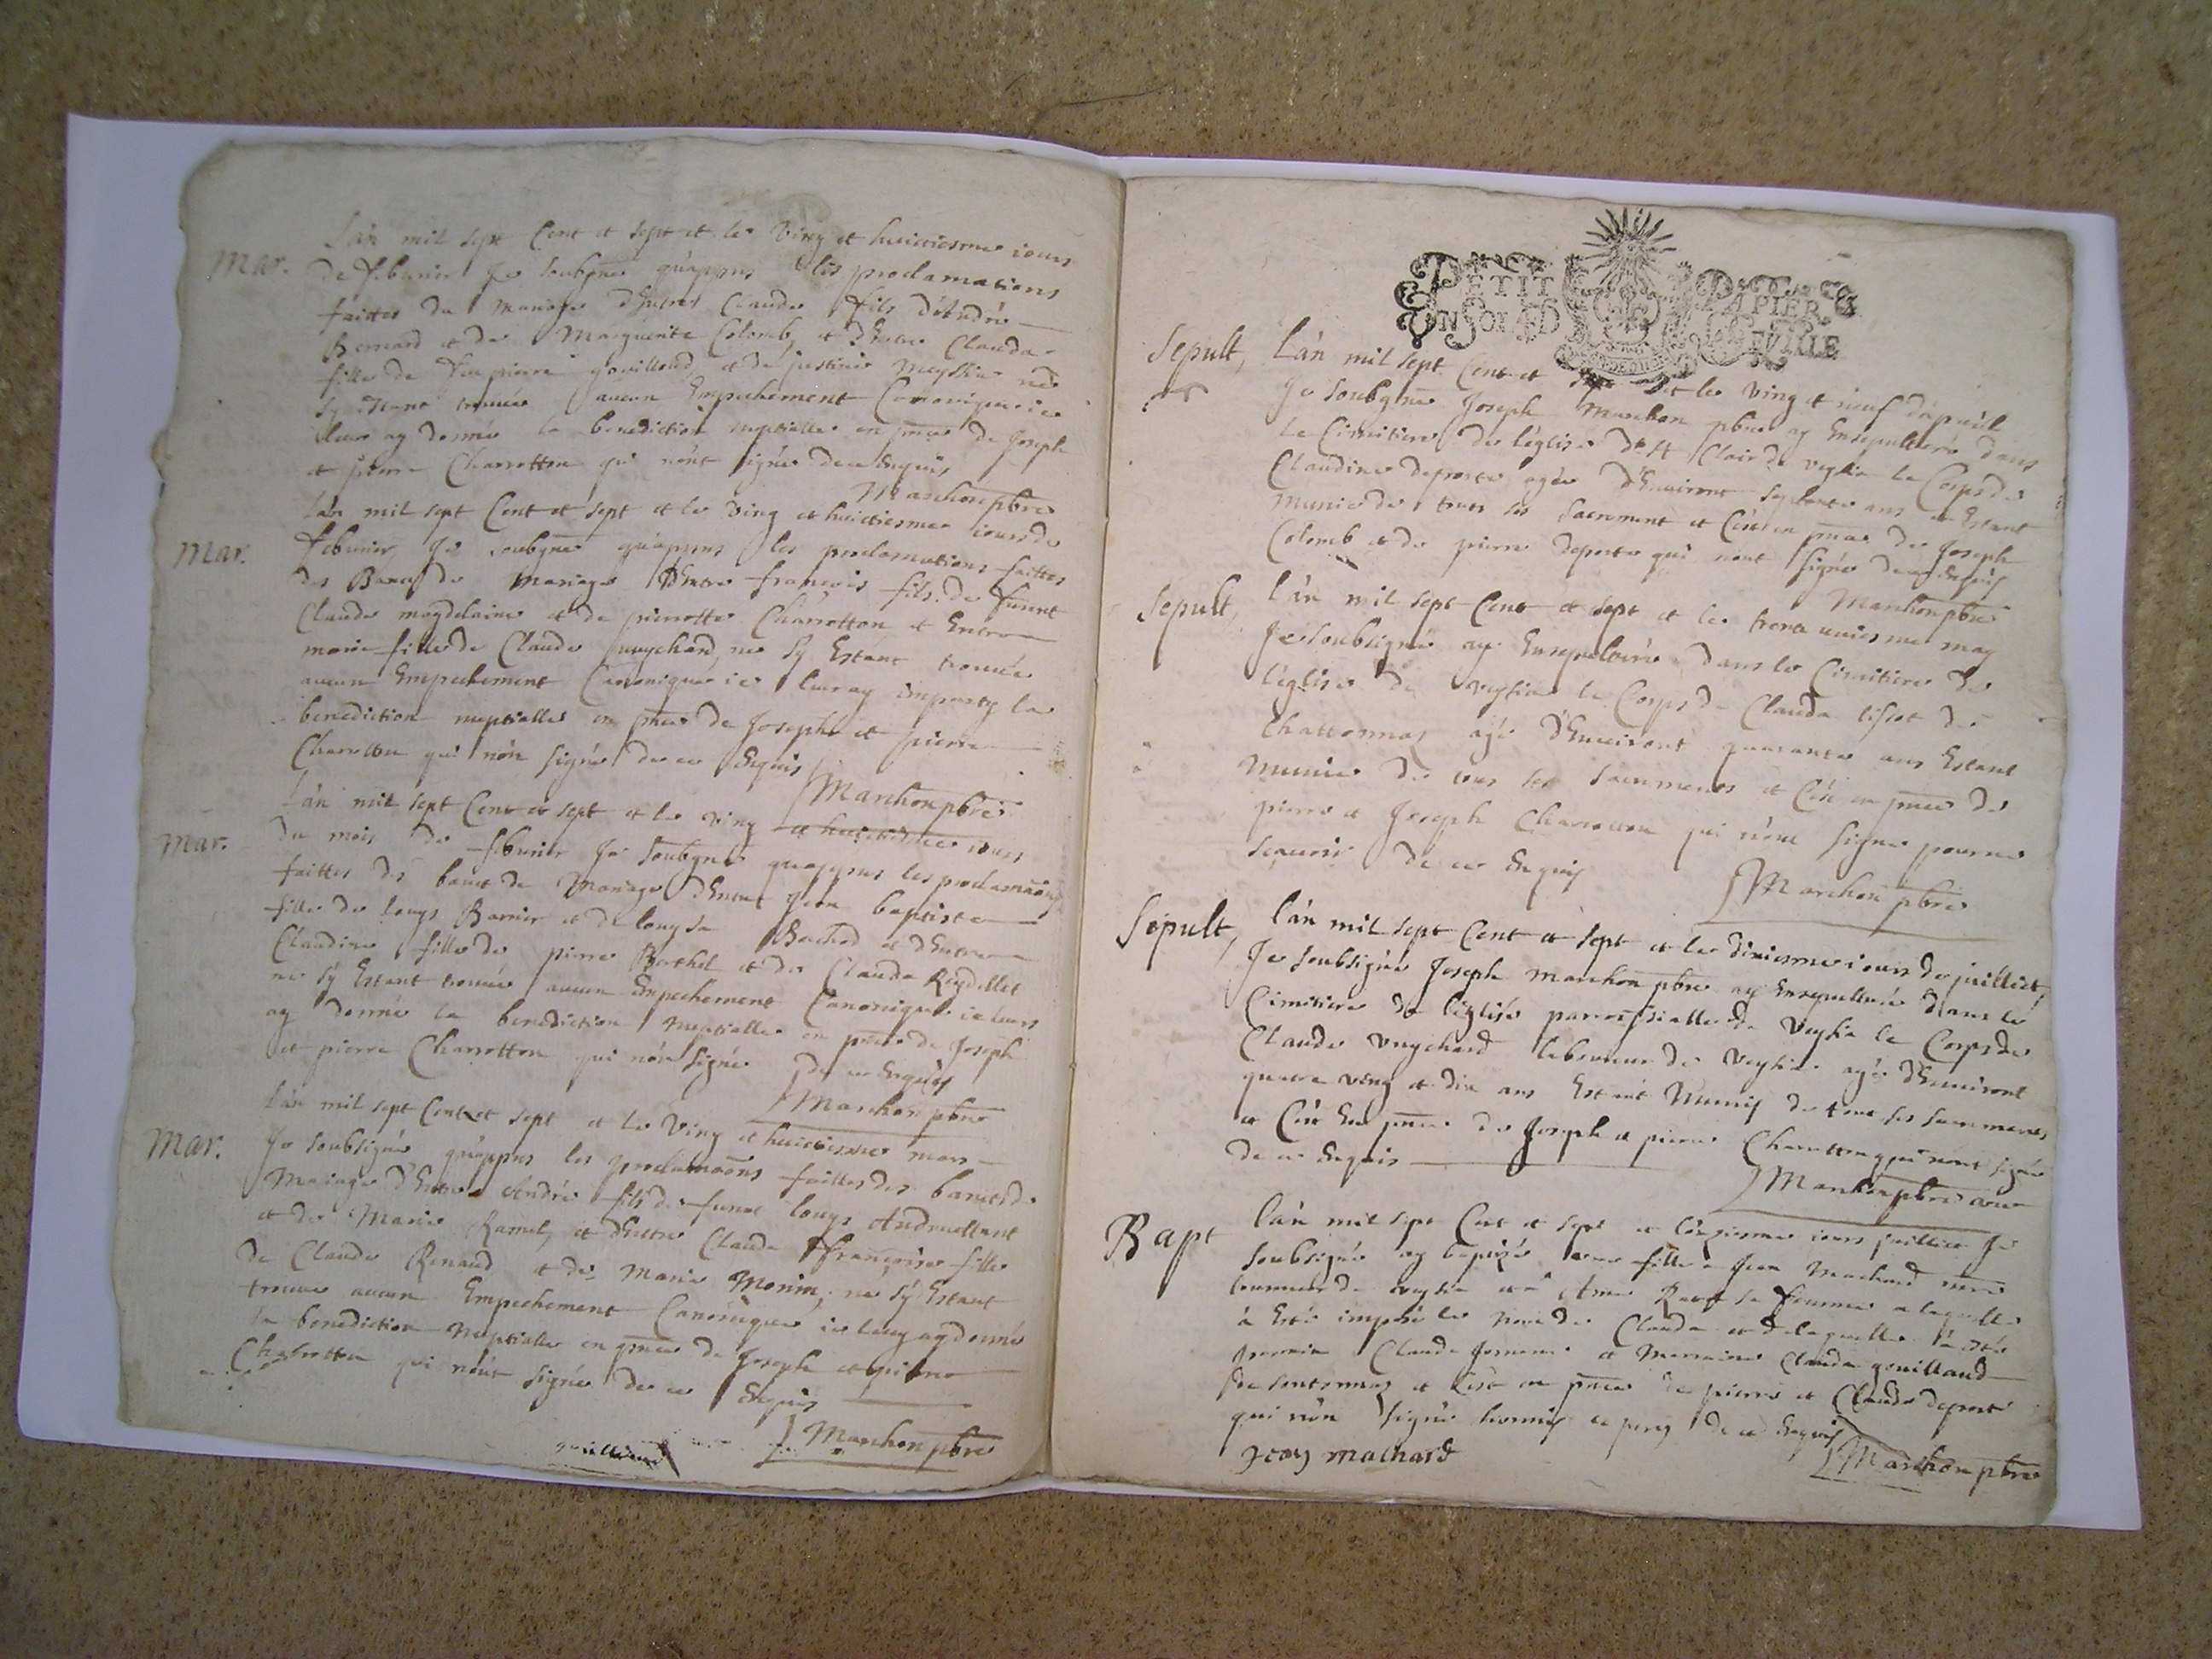 Mar.
Lan mil sept Cent et sept et le ving et huictiesme iours
de feburier Je soubgne quappres les proclamations
faittes du mariage dEntre Claude fils dAndré
Bernard et de Marguerite Colomb, et dEntre Clauda
fille de feu pierre gouilloud et de justine Meyssin ne
sy Estant trouvée aucun Empechement Canonique ie
leur ay donnée la benediction nuptialle en pnce de Joseph
et pierre Charrotton qui nont signée de ce Enquis
Marchon pbre
Mar.
Lan mil sept Cent et sept et le ving et huictiesme iours de
feburier Je soubgne quappres les proclamations faittes
des Bancs de Mariage dEntre françois fils de funct
Claude magdelaine et de pierrotte Charrotton et Entre
marie fille de Claude vuychard, ne sy Estant trouvée
aucun Empechement Canonique ie leur ay imparty la
benediction nuptialle en pnce de Joseph et pierre
Charotton qui non signé de ce Enquis
Marchon pbre
Mar.
Lan mil sept Cent et sept et le ving et huictiesme iours
du mois de feburier Je soubgne quappres les proclamaons
faittes des bancs de Mariage dEntre Jean baptiste
fille de louys Barnier et de louyse Bachod et dEntre
Claudine fille de pierre Berthet et de Clauda Reydellet
ne sy Estant trouvée aucun Empechement Canonique ie leurs
ay donnée la benediction Nuptialle en pnce de Joseph
et pierre Charrotton qui non signée de ce Enquis
Marchon pbre
Mar.
Lan mil sept Cent et sept et le Ving et huictiesme mars
Je soubsigné quappres les proclamaons faittes des bancs de
Mariage dEntre André fils de funct louys Andruettant
et de Marie Ramel, et dEntre Claude ffrançoise fille
de Claude Renaud et de Marie Monin, ne sy Estant
trouve aucun Empechement Canonique ie leur ay donné
la benediction Nuptialle en pnce de Joseph et pierre
Charrotton qui nont signée de ce Enquis
Marchon pbre
PETIT PAPIER
Sepult,
Lan mil sept Cent et sept et le ving et neuf dapuril
Je soubgne Joseph Marchon pbre ay Ensepulturé dans
le Cimitiere de leglise de St Clair de veyzia le Corps de
Claudine deporte agée dEnviront septente ans et Estant
Munie de tous ses sacrement et Cest en pnce de Joseph
Colomb et de pierre deporte qui nont signé de ce Enquis
Marchon pbre
Sepult,
lan mil sept Cent et sept et le trente uniesme may
Je soubsigné ay Ensepulturé dans le Cimitiere de
leglise de veyzia le Corps de Clauda tissot de
Chattonnas agé dEnviront quarante ans Estant
Munie de tous ses sacrements et Cest en pnce de
pierre et Joseph Charrotton qui nont signe pour ne
scavoir de ce Enquis
Marchon pbre
Sepult,
lan mil sept Cent et sept et le dixiesme iours de juillict
Je soubsigné Joseph marchon pbre ay Ensepulturé dans le
Cimitiere de leglise parroissialle de Veyzia le Corps de
Claude vuychard laboureur de veyzia agé dEnviront
quatre ving et dix ans Estant Muny de tous ses sacrements
et Cest En pnce de Joseph et pierre Charotton qui nont signé
de ce Enquis
Marchon pbre
Bapt
lan mil sept Cent et sept et iours juillict Je
soubsigné ay baptizé une fille a Jean Machard
de veyzia et a Anne sa femme a laquelle
à Esté imposé le nom de Clauda et de laquelle à esté
parrain Claude et Marraine Clauda gouilland
de et Cest en pnce de pierre et Claude deporte
qui non signé hormis ce père de ce Enquis
Jean machard
Marchon pbre